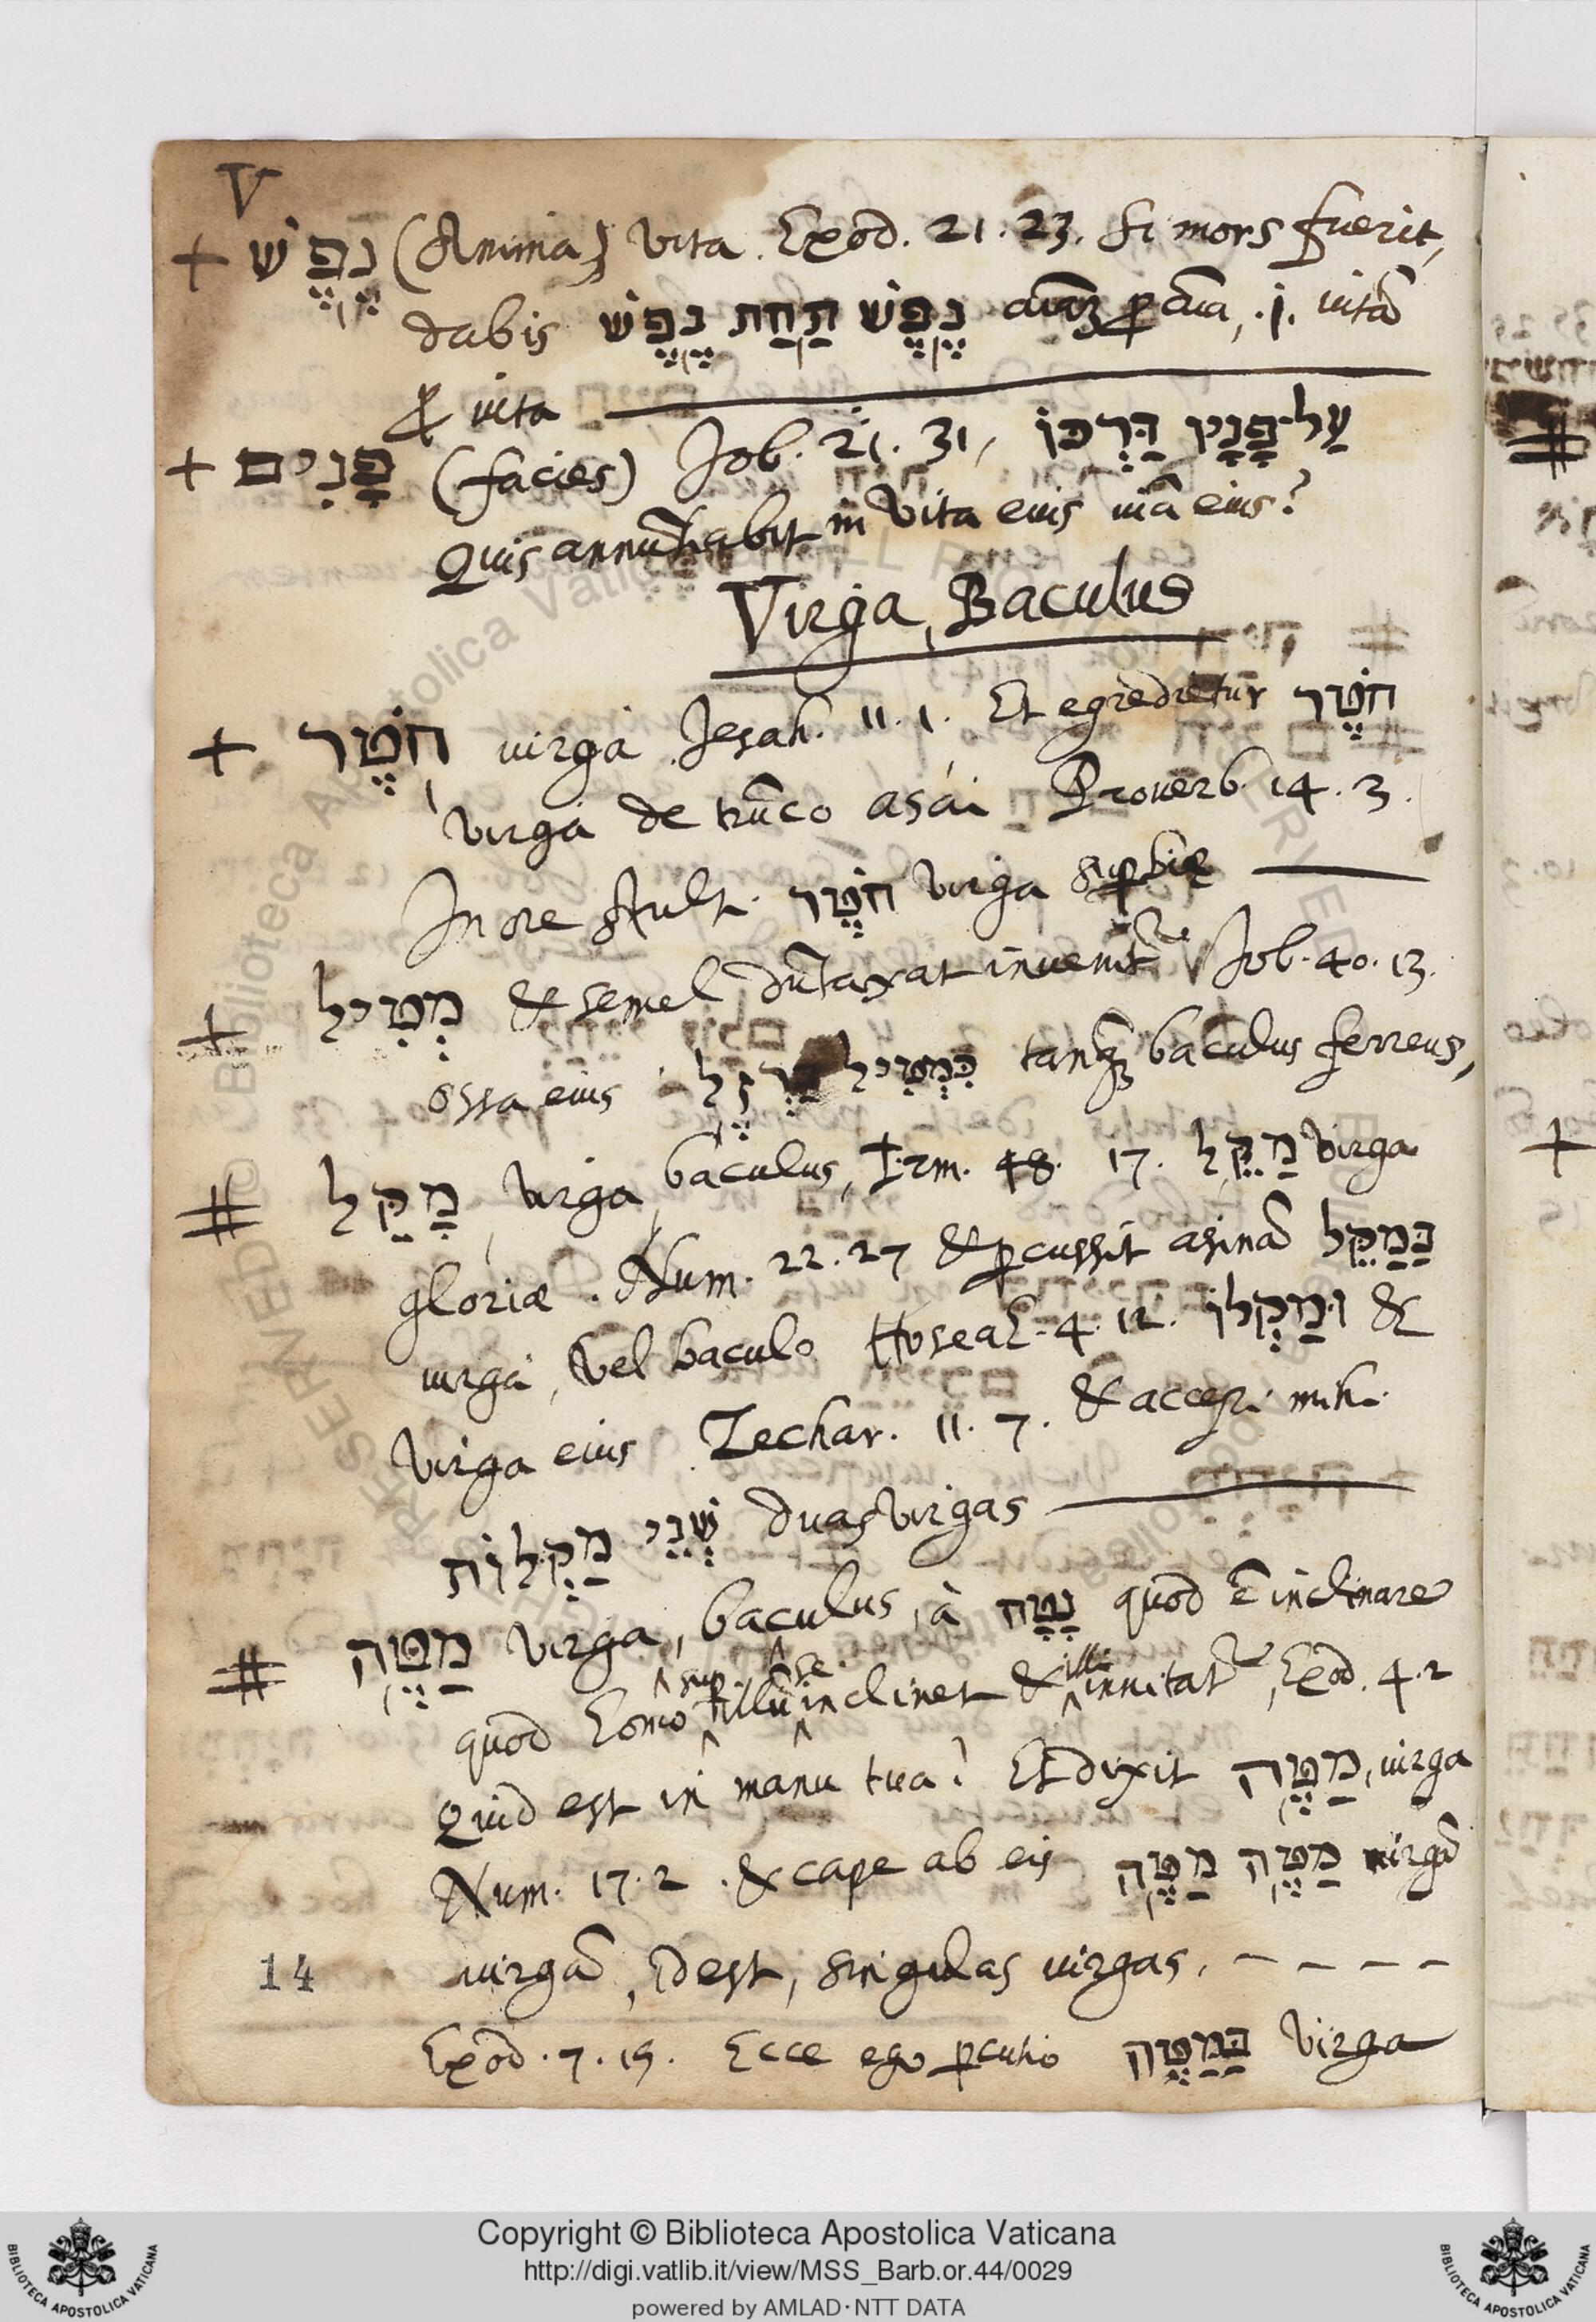 V
+ נֶפֶשׁ (Anima) vita. Exod. 21. 23. si mors fuerit,
dabis נֶפֶשׁ תַּחַת נֶפֶשׁ aīaʒ ꝑ aīa, .i. vitā
ꝑ vita
+ פָּנִים (facies) Job. 21. 31, עַל־פָּנָיו דַּרְכּוֹ
Quis annūtiabit in vita eius viā eius?
Virga, Baculus
+ חֹטֶר virga Jesah. 11. 1. Et egredietur חֹטֶר
virga de trūco Proverb. 14. 3.
In ore stult. חֹטֶר virga suꝑbiæ
+ מְטִיל & semel dūtaxat invenitr Job. 40. 13.
ossa eius כִּמְטִיל בַּרְזֶל tanqʒ baculus ferreus,
# מַקֵּל virga, baculus, Irm. 48. 17. מַקֵּל virga
gloriæ. Num. 22. 27 & ꝑcussit asinā בַּמַּקֵּל
virga, vel baculo Hoseah. 4. 12. וּמַקְלוֹ &
virga eius Zechar. 11. 7. & accepi mihi
שְׁנֵי מַקְלוֹת duas virgas
# מַטֶּה virga, baculus, à נָטָה quod ē inclinare
quod homo suꝑ illū se inclinet & illi innitatr, Exod. 4. 2
Quid est in manu tua? Et dixit מַטֶּה, virga
Num. 17. 2. & cape ab eis מַטֶּה מַטֶּה virgā
virgā, idest, singulas virgas, – – – –
14
Exod. 7. 15. Ecce ego ꝑcutio בַּמַּטֶּה virga
Copyright © Biblioteca Apostolica Vaticana
http://digi.vatlib.it/view/MSS_Barb.or.44/0029
powered by AMLAD·NTT DATA